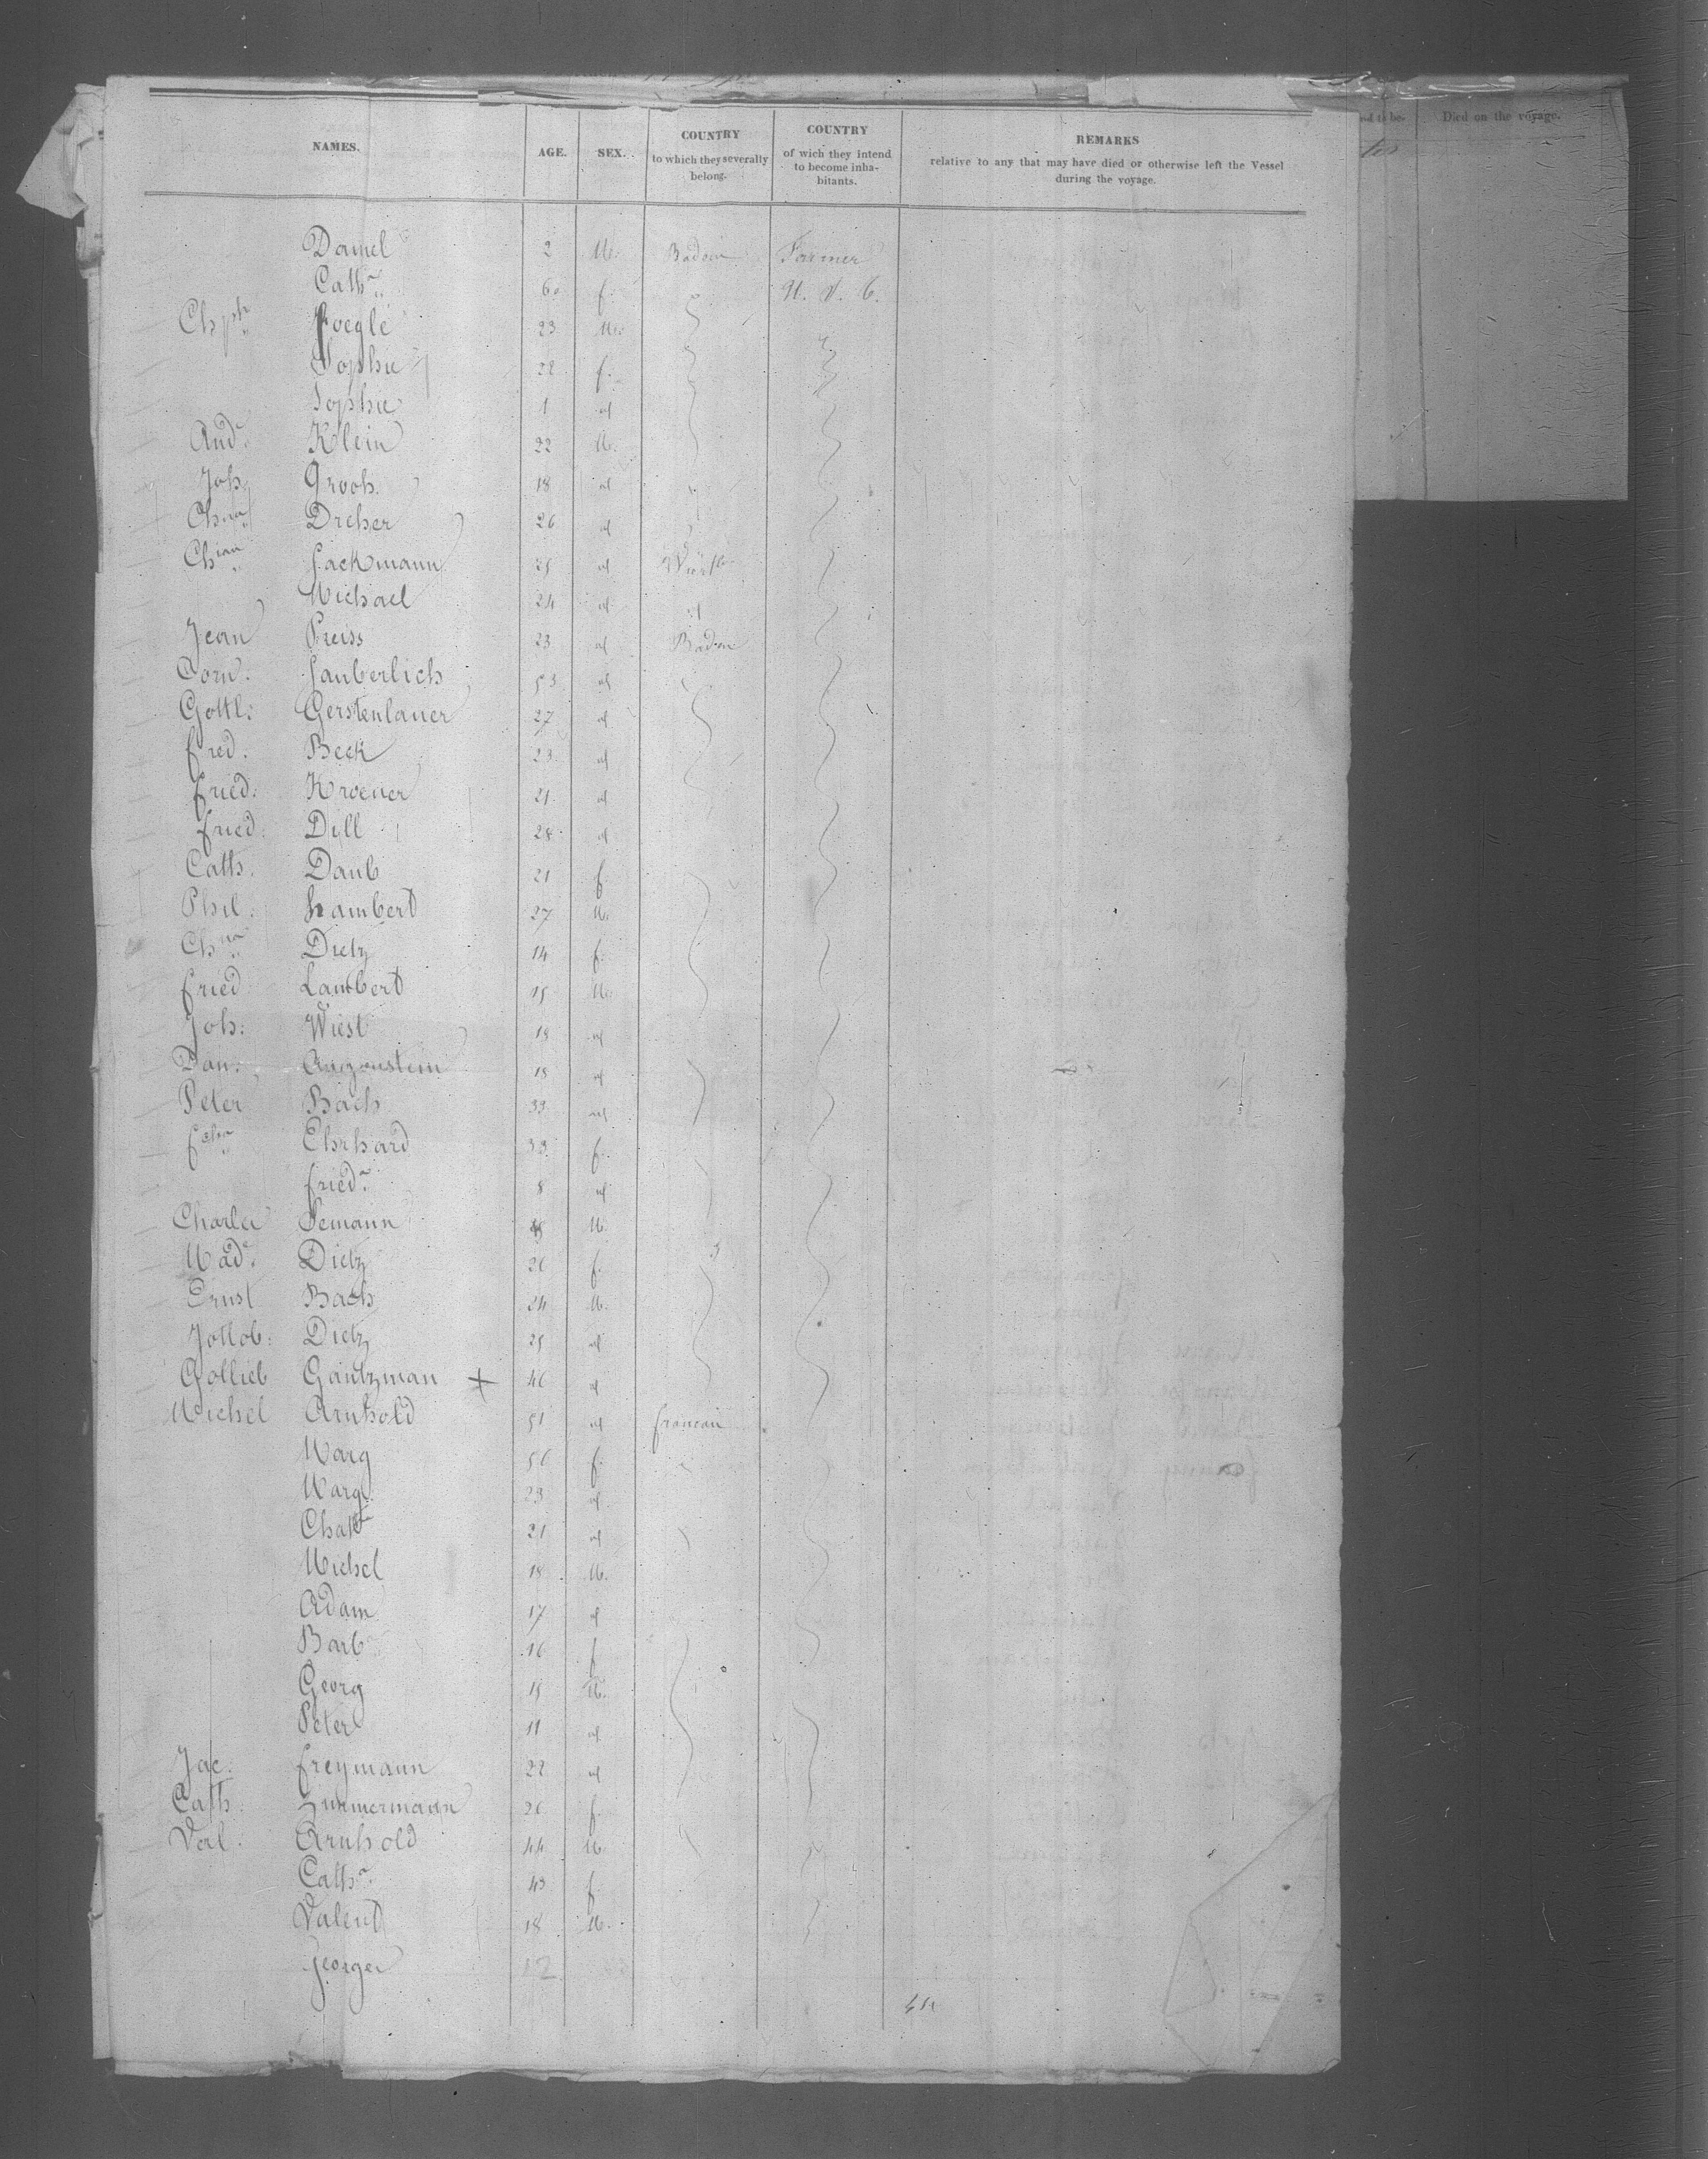 NAMES. AGE. SEX. COUNTRY to which they severally belong. COUNTRY of wich they intend to become inhabitants. REMARKS relative to any that may have died or otherwise left the Vessel during the voyage.
nd to be- Died on the voyage.
Daniel 2 M. Baden Farmer
Cath.a 60 f. U. S. C.
Chph. Foegle 23 M.
Sophie 22 f.
Sophie 1 id
And. Klein 22 M.
Joh. Grooh. 18 id
Dreher 26 id
Chian Jackmann 25 id Württ
Michael 24 id id
Jean Preiss 23 id Baden
Corn. Sauberlich 53 id
Gottl: Gerstenlauer 27 id
fred. Beck 23 id
fried: Kroener 21 id
fried. Dill 28 id
Cath. Daub 21 f.
Phil. Lambert 27 M.
Chna Dietz 14 f.
fried Lambert 15 M.
Joh: Wiest 18 id
Dan. Augenstein 18 id
Peter Bach 33 id
Ehrhard 33 f.
fried.a 8 id
Charles Semann M.
Mad. Dietz 26 f.
Ernst Bach 24 M.
Jottob: Dietz 25 id
Gottlieb Gantzman + 46 id
Michel Arnhold 51 id francais
Marg 56 f.
Marg. 23 id
21 id
Michel 18 M.
Adam 17 id
Barb 16 f
Georg 15 M.
Peter 11 id
Jac. freymann 22 id
Cath. Zimmermann 26 f.
Val. Arnhold 44 M.
Cath.a 43 f.
Valent 18 M.
Georges 12